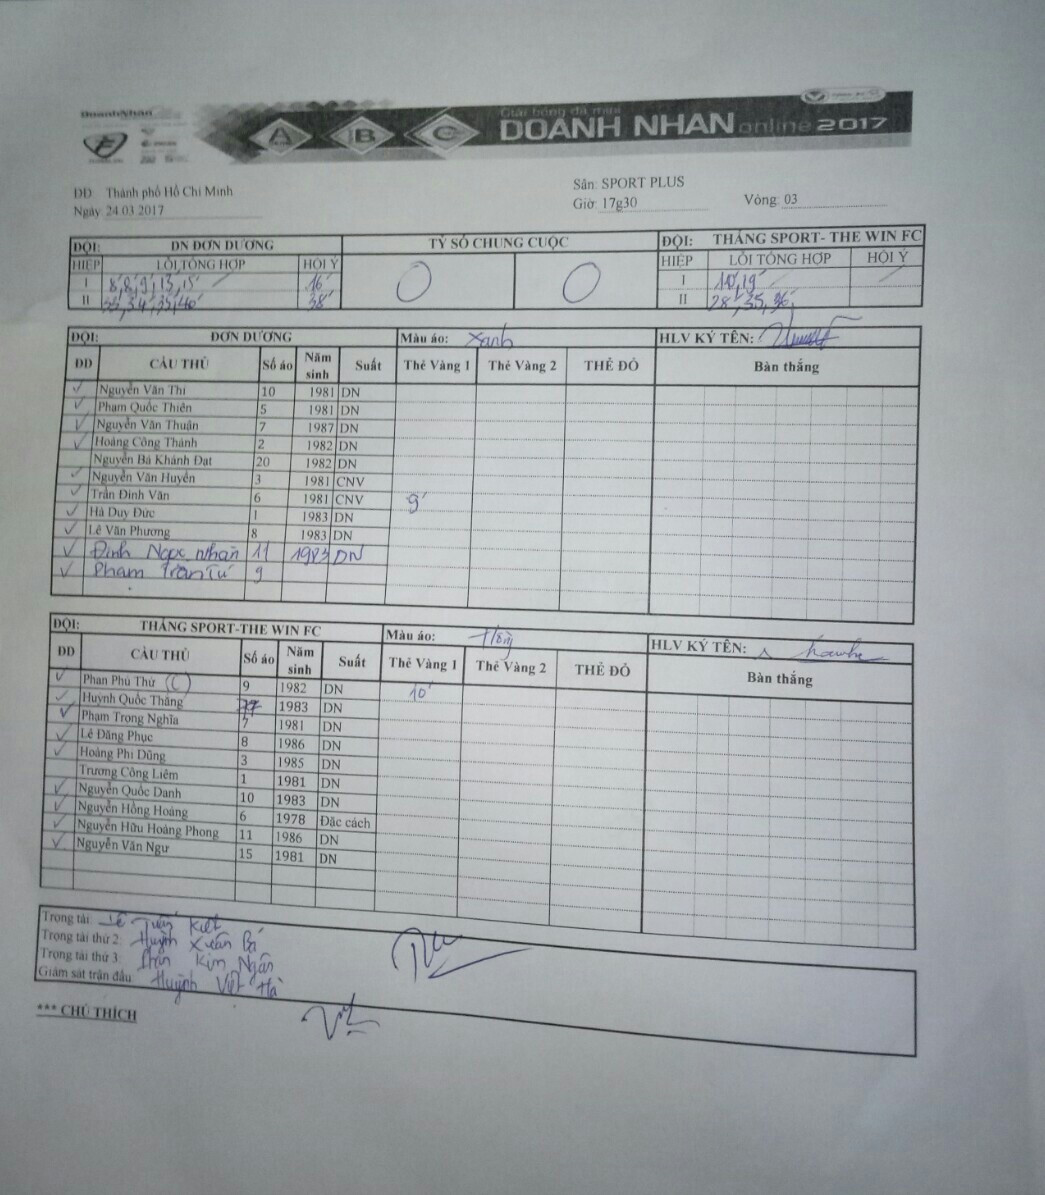 DoanhNhân
A B C
Giải bóng đá mini
DOANH NHÂN online 2017
DD Thành phố Hồ Chí Minh
Ngày 24.03.2017
Sân: SPORT PLUS
Giờ: 17g30 Vòng: 03
ĐỘI: DN ĐƠN DƯƠNG TỶ SỐ CHUNG CUỘC ĐỘI: THẮNG SPORT- THE WIN FC
HIỆP LỖI TỔNG HỢP HỘI Ý 0 0 HIỆP LỖI TỔNG HỢP HỘI Ý
I 8', 8', 9', 13, 15' 16' I 10', 19'
II 33', 34', 35', 40' 38' II 28', 35, 36'
ĐỘI: ĐƠN DƯƠNG Màu áo: Xanh HLV KÝ TÊN:
DD CẦU THỦ Số áo Năm sinh Suất Thẻ Vàng 1 Thẻ Vàng 2 THẺ ĐỎ Bàn thắng
Nguyễn Văn Thi 10 1981 DN
Phạm Quốc Thiên 5 1981 DN
Nguyễn Văn Thuận 7 1987 DN
Hoàng Công Thành 2 1982 DN
Nguyễn Bá Khánh Đạt 20 1982 DN
Nguyễn Văn Huyền 3 1981 CNV
Trần Đình Văn 6 1981 CNV 9'
Hà Duy Đức 1 1983 DN
Lê Văn Phương 8 1983 DN
Đinh Ngọc Nhàn 11 1983 DN
Phạm Trần Tú 9
ĐỘI: THẮNG SPORT-THE WIN FC Màu áo: Hồng HLV KÝ TÊN:
DD CẦU THỦ Số áo Năm sinh Suất Thẻ Vàng 1 Thẻ Vàng 2 THẺ ĐỎ Bàn thắng
Phan Phú Thứ (C) 9 1982 DN 10'
Huỳnh Quốc Thắng 77 1983 DN
Phạm Trọng Nghĩa 7 1981 DN
Lê Đăng Phục 8 1986 DN
Hoàng Phi Dũng 3 1985 DN
Trương Công Liêm 1 1981 DN
Nguyễn Quốc Danh 10 1983 DN
Nguyễn Hồng Hoàng 6 1978 Đặc cách
Nguyễn Hữu Hoàng Phong 11 1986 DN
Nguyễn Văn Ngư 15 1981 DN
Trọng tài: Lê Tuấn Kiệt
Trọng tài thứ 2: Huỳnh Xuân Bá
Trọng tài thứ 3: Kim Ngân
Giám sát trận đấu: Huỳnh Việt Hà
*** CHÚ THÍCH